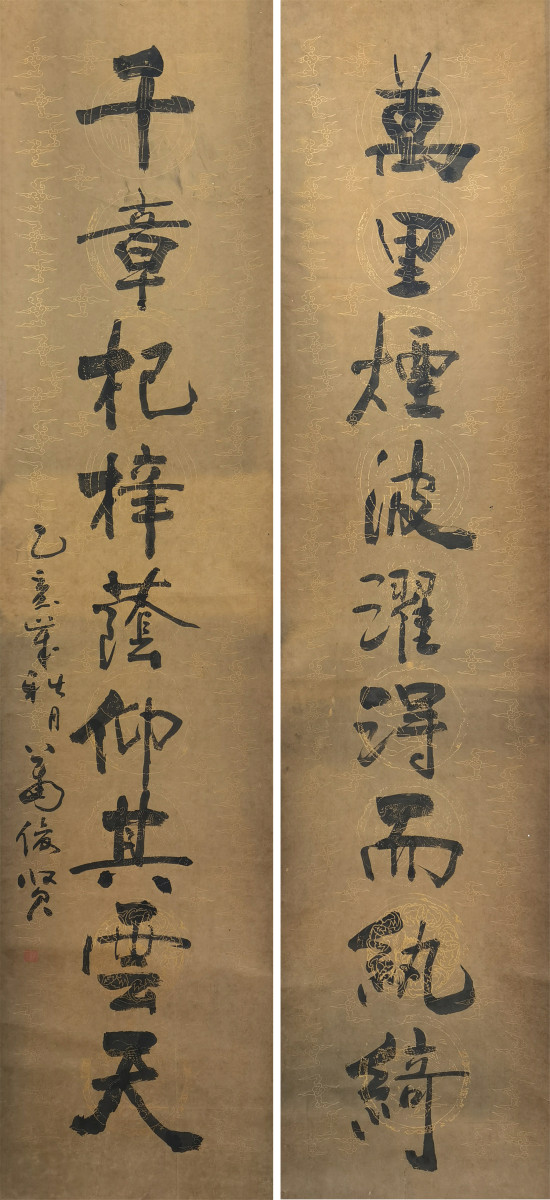 萬里煙波濯得而紈綺
千章杞梓蔭仰其雲天
乙亥歲秋七月蕭俊賢